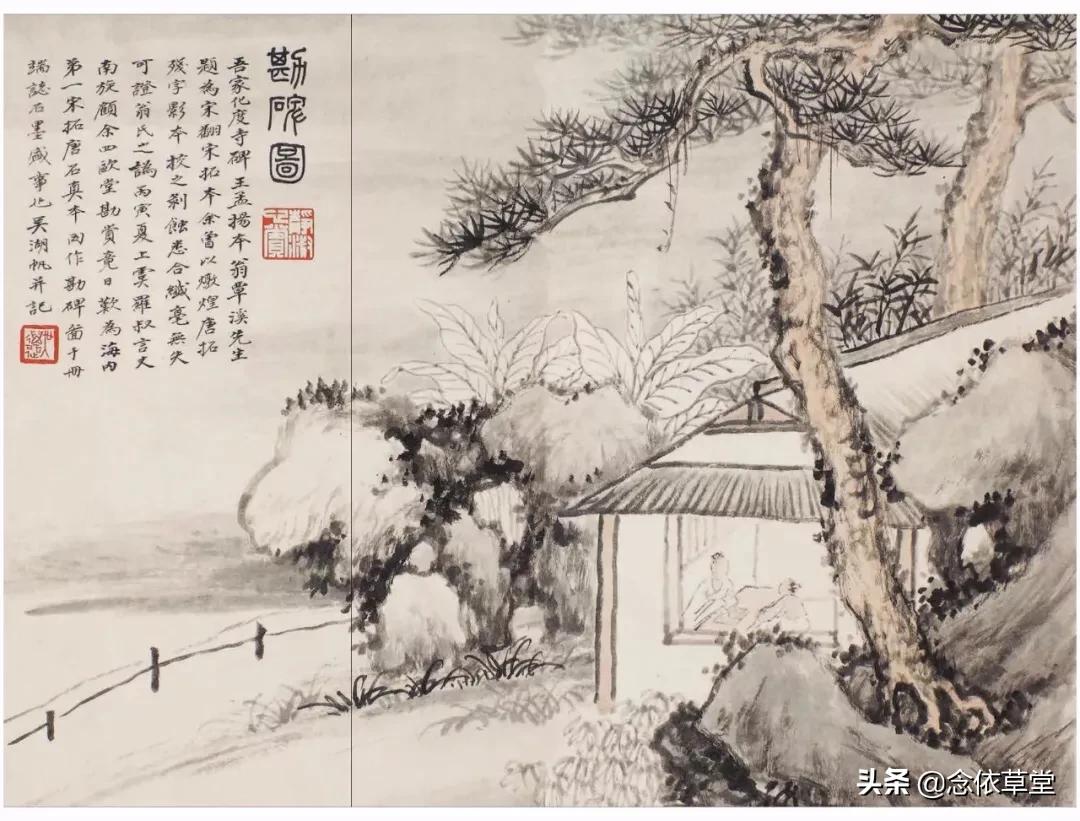 勘碑圖
吾家化度寺碑王孟揚本翁覃溪先生
題為宋翻宋拓本余嘗以燉煌唐拓
殘字影本校之剥蝕悉合纖毫無失
可證翁氏之譌丙寅夏上虞羅叔言丈
南旋顧余四歐堂勘賞竟日歎為海內
第一宋拓唐石真本因作勘碑啚于冊
端誌石墨盛事也吴湖帆并記
頭条 @念依草堂